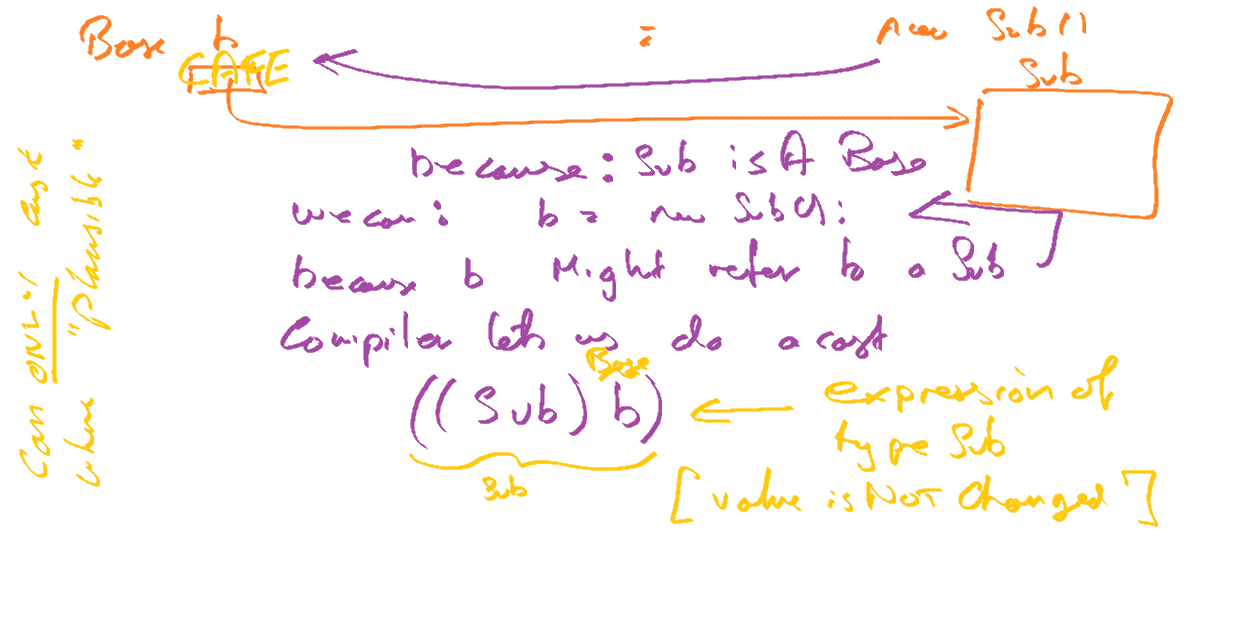 Base b = new Sub()
CAFE
Sub
because: Sub isA Base
we can: b = new Sub();
because b Might refer to a Sub
Compiler lets us do a cast
Base
((Sub) b) ← expression of
type Sub
Sub
[value is NOT Changed]
Can ONLY cast
where "plausible"